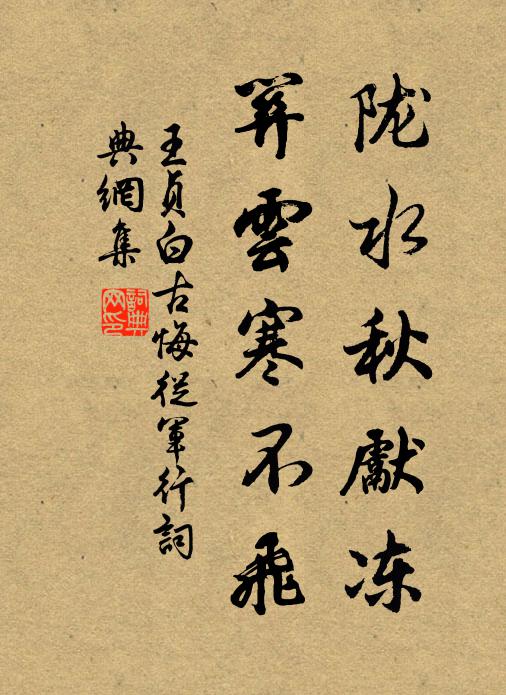 陇水秋獻冻
雲寒不飛
王貞白古悔從軍行詞
典網集
詞典網印